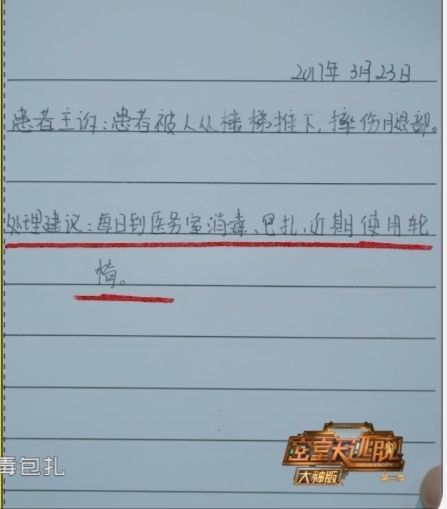 2017年 3月23日
患者主诉:患者被人从楼梯推下,摔伤腿部。
处理建议:每日到医务室消毒、包扎,近期使用轮
椅。
毒包扎
密室大逃脱
大神版
第一季